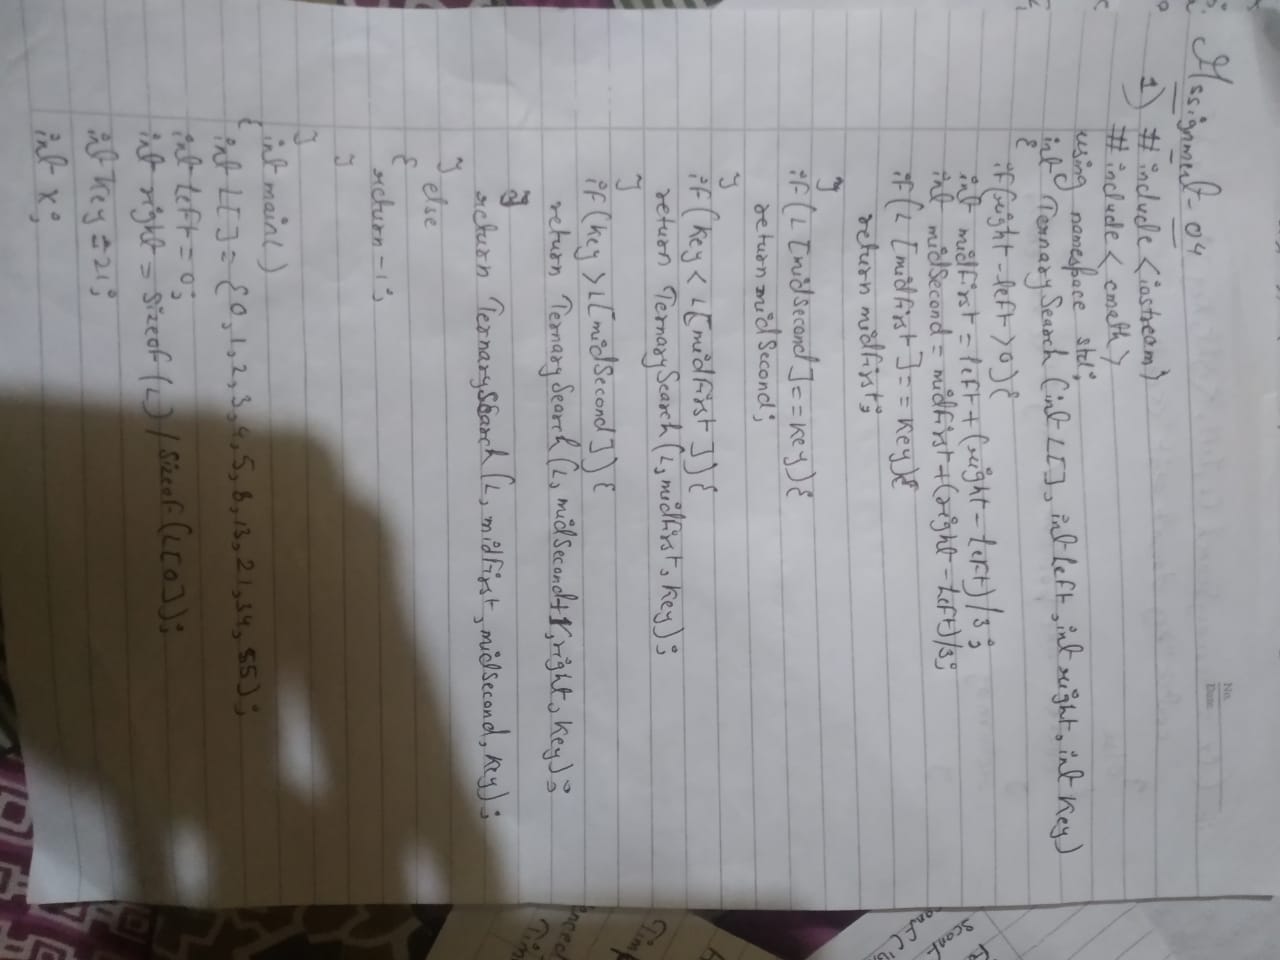 Assignment-04
1) #include<iostream>
#include<cmath>
using namespace std;
int TernarySearch (int L[], int left, int right, int key)
{
if(right-left>0){
int midfirst = left + (right-left)/3;
int midSecond = midfirst+(right-left)/3;
if(L[midfirst]==key){
return midfirst;
}
if(L[midSecond]==key){
return midSecond;
}
if(key<L[midfirst]){
return TernarySearch(L,midfirst,key);
}
if(key>L[midSecond]){
return TernarySearch(L,midSecond+1,right,key);
}
return TernarySearch(L,midfirst,midSecond,key);
}
else
{
return -1;
}
}
int main()
{
int L[] = {0,1,2,3,4,5,8,13,21,34,55};
int left = 0;
int right = sizeof(L)/sizeof(L[0]);
int key = 21;
int x;
No.
Date